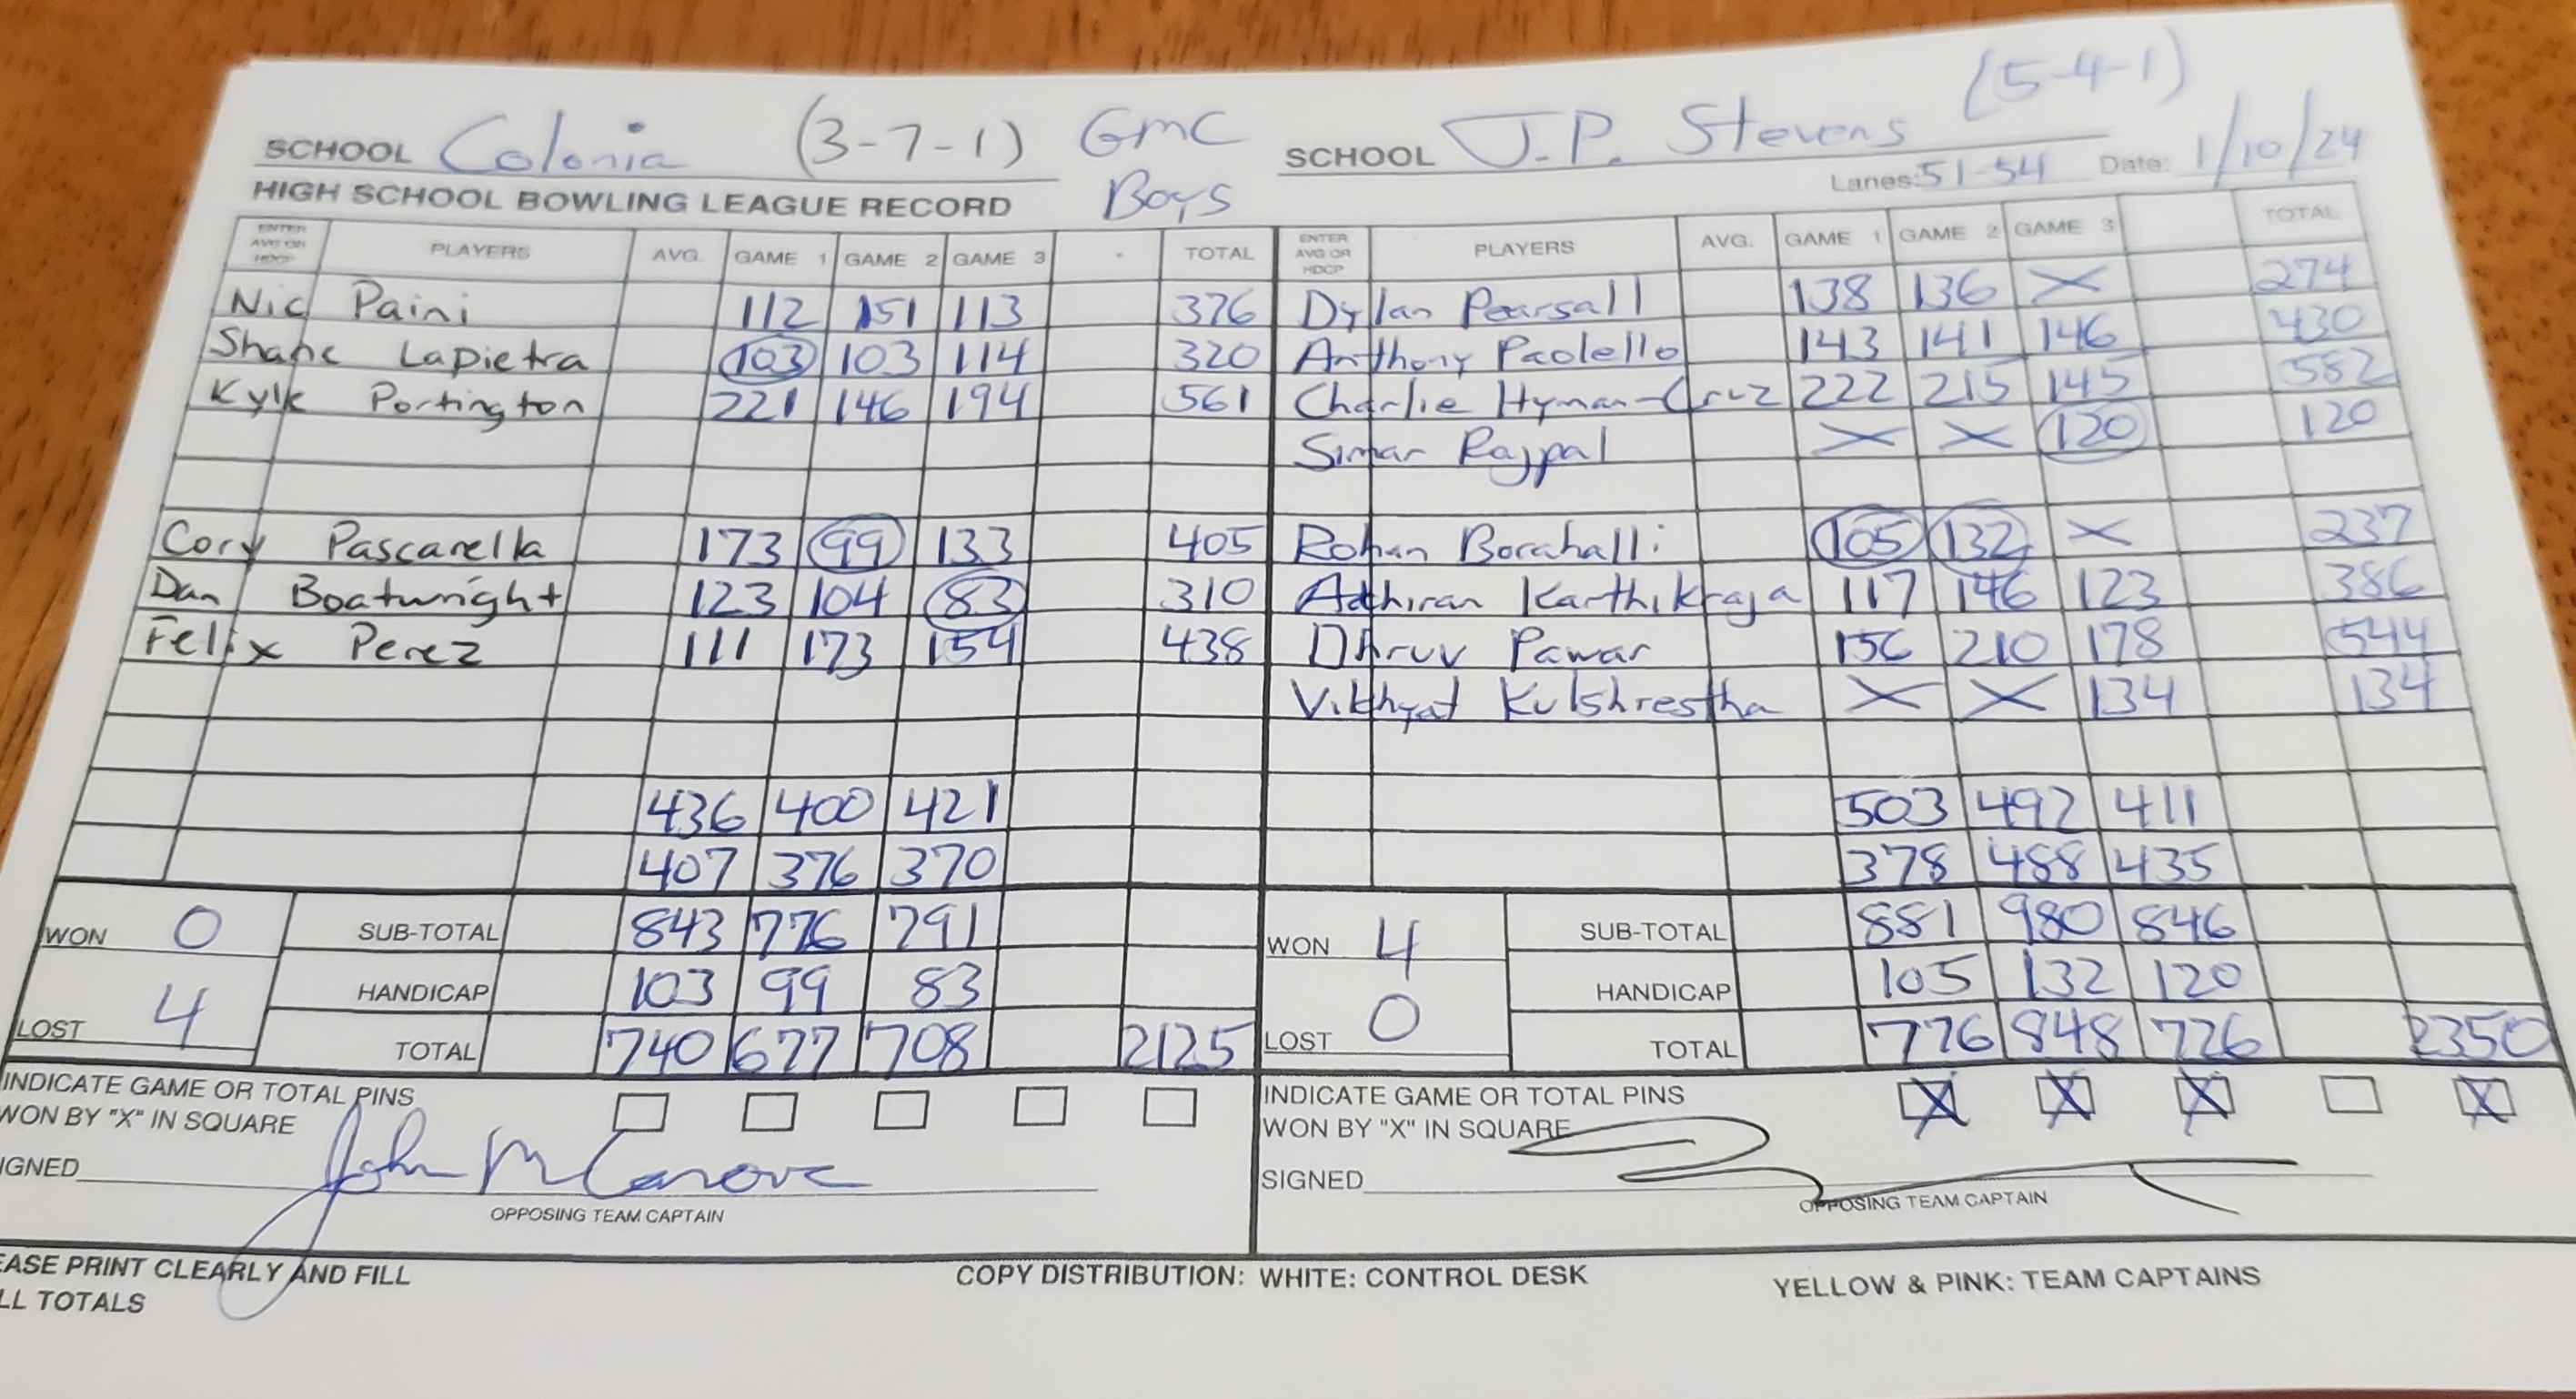 (5-4-1)
SCHOOL Colonia (3-7-1) GMC SCHOOL J.P. Stevens
HIGH SCHOOL BOWLING LEAGUE RECORD Boys Lanes: 51-54 Date: 1/10/24
ENTER AVG OR HDCP PLAYERS AVG. GAME 1 GAME 2 GAME 3 TOTAL ENTER AVG OR HDCP PLAYERS AVG. GAME 1 GAME 2 GAME 3 TOTAL
Nic Paini 112 151 113 376 Dylan Pearsall 138 136 X 274
Shane Lapietra 103 103 114 320 Anthony Paolello 143 141 146 430
Kyle Portington 221 146 194 561 Charlie Hyman-Cruz 222 215 145 582
Simar Rajpal X X 120 120
Cory Pascarella 173 99 133 405 Rohan Borahalli 105 132 X 237
Dan Boatwright 123 104 83 310 Adhiran Karthikraja 117 146 123 386
Felix Perez 111 173 154 438 Dhruv Pawar 156 210 178 544
Vikhyat Kulshrestha X X 134 134
436 400 421 503 492 411
407 376 370 378 488 435
WON 0 SUB-TOTAL 843 776 791 WON 4 SUB-TOTAL 881 980 846
HANDICAP 103 99 83 HANDICAP 105 132 120
LOST 4 TOTAL 740 677 708 2125 LOST 0 TOTAL 776 848 726 2350
INDICATE GAME OR TOTAL PINS INDICATE GAME OR TOTAL PINS X X X X
WON BY "X" IN SQUARE WON BY "X" IN SQUARE
IGNED John SIGNED
OPPOSING TEAM CAPTAIN OPPOSING TEAM CAPTAIN
EASE PRINT CLEARLY AND FILL COPY DISTRIBUTION: WHITE: CONTROL DESK YELLOW & PINK: TEAM CAPTAINS
LL TOTALS